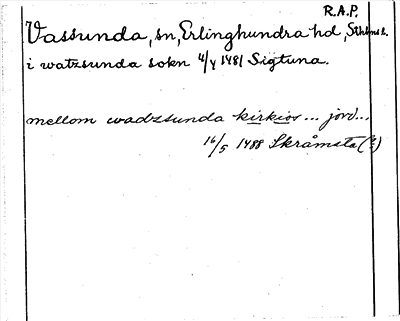 R.A.P.
Vassunda, sn, Erlinghundra hd, Sthlms l.
i watzsunda sokn 4/4 1481 Sigtuna.
mellom wadzsunda kirkios ... jord...
16/5 1488 Skråmsta (?)